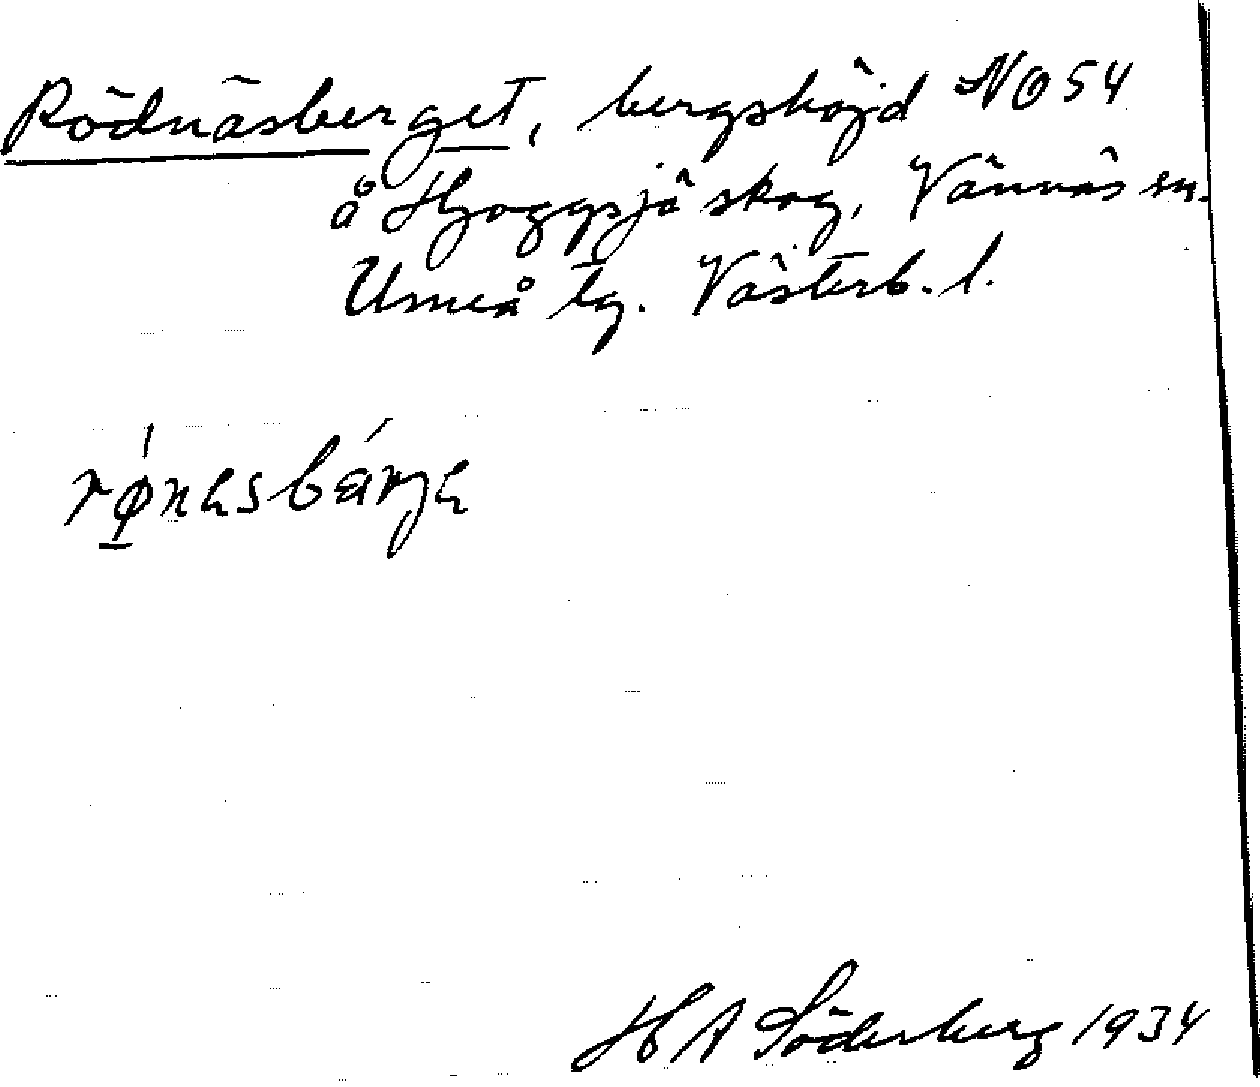 Rödnäsberget, bergshöjd NO 54
å Hjoggsjö skog, Vännäs sn.
Umeå tg. Västerb. l.
H A Söderberg 1934